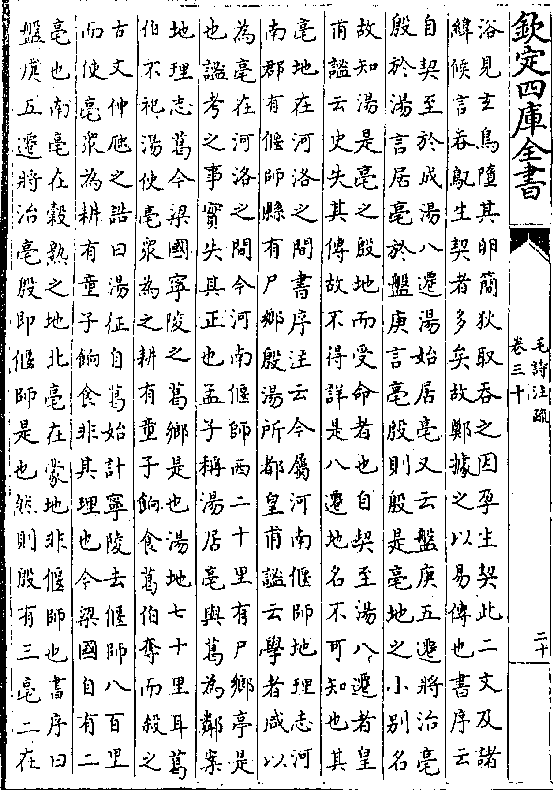 欽定四庫全書
毛詩注疏
卷三十
二十
浴見玄鳥墮其卵簡狄取吞之因孕生契此二文及諸
緯候言吞鳦生契者多矣故鄭據之以易傳也書序云
自契至於成湯八遷湯始居亳又云盤庚五遷將治亳
殷於湯言居亳於盤庚言亳殷則殷是亳地之小别名
故知湯是亳之殷地而受命者也自契至湯八遷者皇
甫謐云史失其傳故不得詳是八遷地名不可知也其
亳地在河洛之間書序注云今屬河南偃師地理志河
南郡有偃師縣有尸鄉殷湯所都皇甫謐云學者咸以
為亳在河洛之間今河南偃師西二十里有尸鄉亭是
也謐考之事實失其正也孟子稱湯居亳與葛為鄰案
地理志葛今梁國寧陵之葛鄉是也湯地七十里耳葛
伯不祀湯使亳衆為之耕有童子餉食葛伯奪而殺之
古文仲虺之誥曰湯征自葛始計寧陵去偃師八百里
而使亳衆為耕有童子餉食非其理也今梁國自有二
亳也南亳在穀熟之地北亳在蒙地非偃師也書序曰
盤庚五遷將治亳殷即偃師是也然則殷有三亳二在